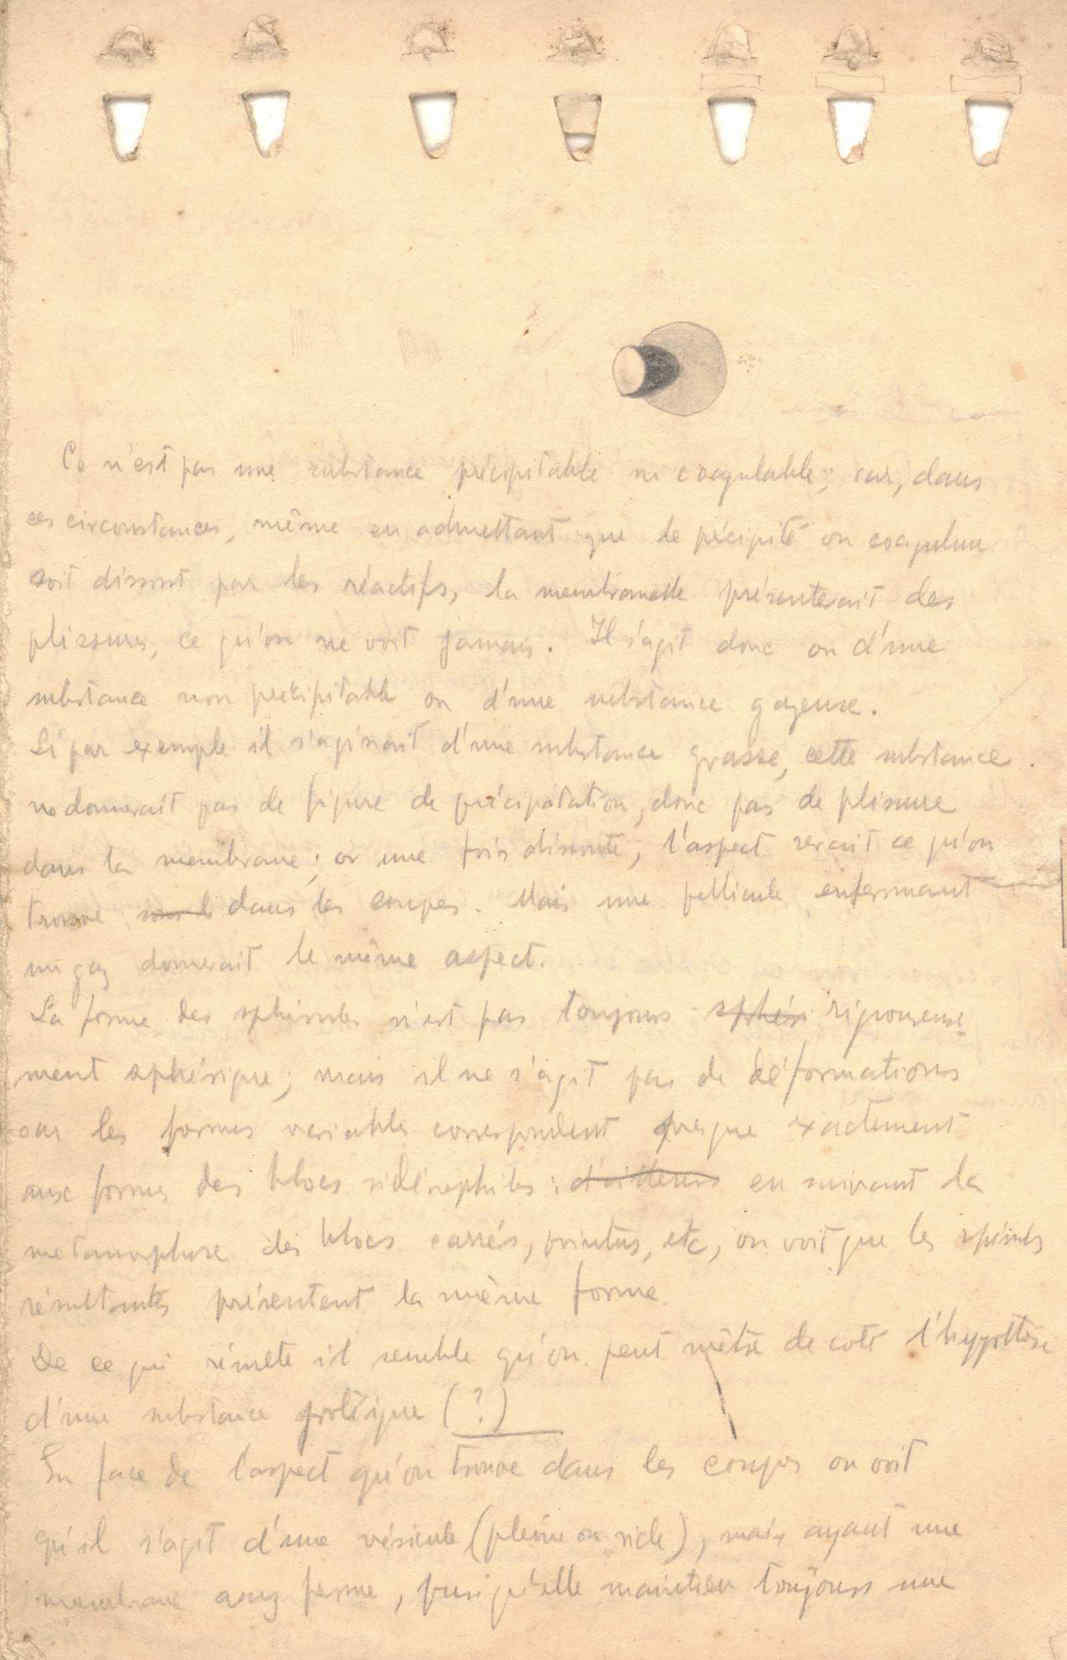 Ce n'est pas une substance précipitable ni coagulable; car, dans
ces circonstances, même en admettant que le précipité ou coagulum
soit dissout par les réactifs, la membranelle présenterait des
plissures, ce qu'on ne voit jamais. Il s'agit donc ou d'une
substance non précipitable ou d'une substance gazeuse.
Si par exemple il s'agissait d'une substance grasse, cette substance
ne donnerait pas de figure de précipitation, donc pas de plissure
dans la membrane; or une fois dissoute, l'aspect serait ce qu'on
trouve dans les coupes. Mais une pellicule enfermant
un gaz donnerait le même aspect.
La forme des sphérules n'est pas toujours sphéri rigoureuse
ment sphérique; mais il ne s'agit pas de déformations
car les formes variables correspondent presque exactement
aux formes des blocs sidérophiles: d'ailleurs en suivant la
métamorphose des blocs carrés, pointus, etc, on voit que les
résultantes présentent la même forme.
De ce qui résulte il semble qu'on peut mètre de coté l'hypothèse
d'une substance (?)
En face de l'aspect qu'on trouve dans les coupes on voit
qu'il s'agit d'une vésicule (pleine ou vide), mais ayant une
membrane assez ferme, puisqu'elle maintien toujours une